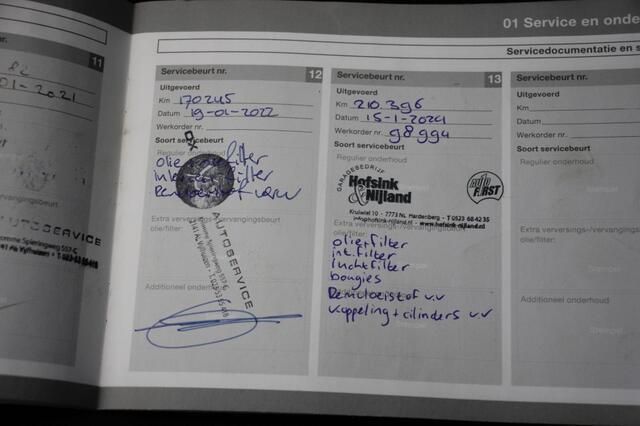 01 Service en onde
Servicedocumentatie en s
11
01-2021
Spieringweg 557-G
Vijfhuizen
Servicebeurt nr. 12
Uitgevoerd
Km 170245
Datum 19-01-2022
Werkorder nr.
Soort servicebeurt
Regulier onderhoud
olie filter
filter
Extra verversings-/vervangingsbeurt
olie/filter:
AUTOSERVICE
Spieringweg 557-G
Vijfhuizen
Additioneel onderhoud
Servicebeurt nr. 13
Uitgevoerd
Km 210.396
Datum 15-1-2024
Werkorder nr. 98994
Soort servicebeurt
Regulier onderhoud
GARAGEBEDRIJF
Hofsink
& Nijland
auto FIRST
Kruiwiel 10 - 7773 NL Hardenberg - T 0523 68 42 35
info@hofsink-nijland.nl - www.hofsink-nijland.nl
Extra verversings-/vervangingsbeurt
olie/filter:
olie+filter
int.filter
luchtfilter
bougies
Remvloeistof v.v
Koppeling + cilinders v.v
Additioneel onderhoud
Servicebeurt nr.
Uitgevoerd
Km
Datum
Werkorder nr.
Soort servicebeurt
Regulier onderhoud
Stempel
Extra verversings-/vervan
olie/filter:
Stempel
Additioneel onderhoud
Stempel